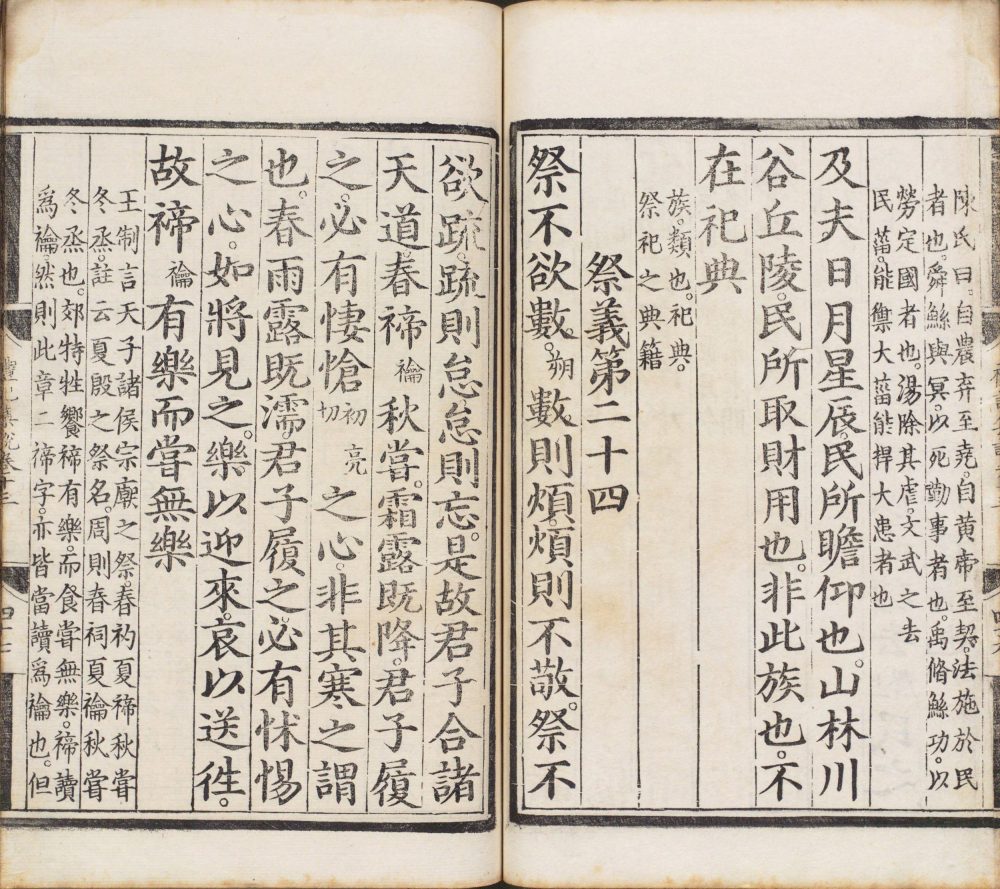 陳氏曰。自農弃至堯。自黃帝至契。法施於民
者也。舜鯀與冥。以死勤事者也。禹脩鯀功。以
勞定國者也。湯除其虐。文武之去
民菑。能禦大菑能捍大患者也
及夫日月星辰。民所瞻仰也。山林川
谷丘陵。民所取財用也。非此族也。不
在祀典
族。類也。祀典。
祭祀之典籍
祭義第二十四
祭不欲數。朔數則煩。煩則不敬。祭不
欲疏。疏則怠。怠則忘。是故君子合諸
天道。春禘禴秋嘗。霜露既降。君子履
之。必有悽愴初亮切之心。非其寒之謂
也。春雨露既濡。君子履之。必有怵惕
之心。如將見之。樂以迎來。哀以送徃。
故禘禴有樂而嘗無樂
王制言天子諸侯宗廟之祭。春礿夏禘秋嘗
冬烝。註云夏殷之祭名。周則春祠夏禴秋嘗
冬烝也。郊特牲饗禘有樂。而食嘗無樂。禘讀
爲禴。然則此章二禘字。亦皆當讀爲禴也。但